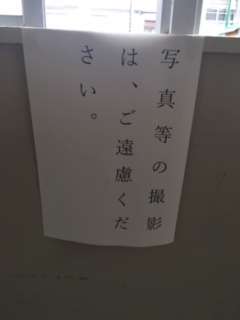 写真等の撮影
は、ご遠慮くだ
さい。